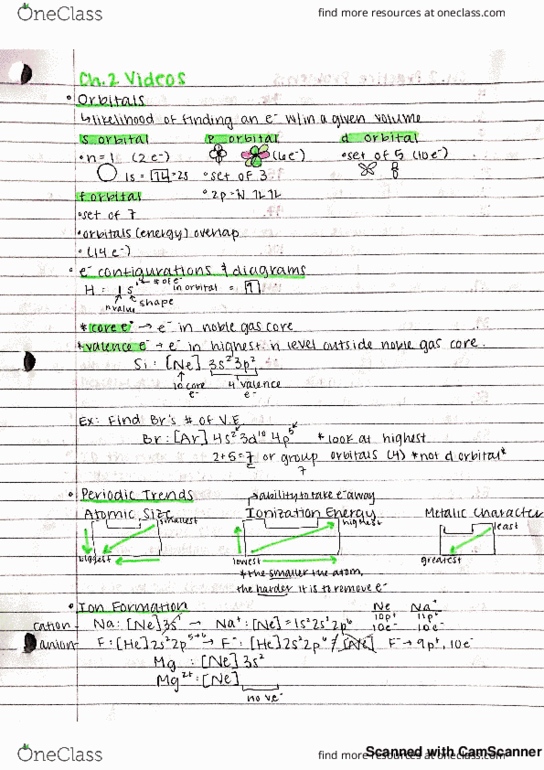 OneClass
find more resources at oneclass.com
Ch.2 Videos
• Orbitals
↳likelihood of finding an e⁻ w/in a given volume
s orbital p orbital d orbital
• n=1 (2e⁻) (6e⁻) •set of 5 (10e⁻)
1s = [1L] = 2s •set of 3
f orbital • 2p = 1L 1L 1L
•set of 7
•orbitals (energy) overlap
• (14e⁻)
• e⁻ configurations & diagrams
H = 1s¹ ← # of e⁻ in orbital = [1]
n value shape
* core e⁻ → e⁻ in noble gas core
* valence e⁻ → e⁻ in highest n level outside noble gas core.
Si : [Ne] 3s² 3p²
10 core e⁻ 4 valence e⁻
Ex: Find Br's # of V.E
Br: [Ar] 4s² 3d¹⁰ 4p⁵ *look at highest
2+5=7 or group orbitals (4) *not d orbital*
7
• Periodic Trends ability to take e⁻ away
Atomic Size Ionization Energy Metalic Character
smallest highest least
biggest lowest greatest
*the smaller the atom,
the harder it is to remove e⁻
• Ion Formation Ne Na⁺
cation - Na: [Ne] 3s¹ → Na⁺: [Ne] = 1s² 2s² 2p⁶ 10p⁺ 10e⁻ 11p⁺ 10e⁻
anion - F: [He] 2s² 2p⁵⁺⁶ → F⁻: [He] 2s² 2p⁶ / [Ne] F⁻ → 9p⁺, 10e⁻
Mg : [Ne] 3s²
Mg²⁺ : [Ne]
no ve⁻
OneClass
find more resources at oneclass.com
Scanned with CamScanner